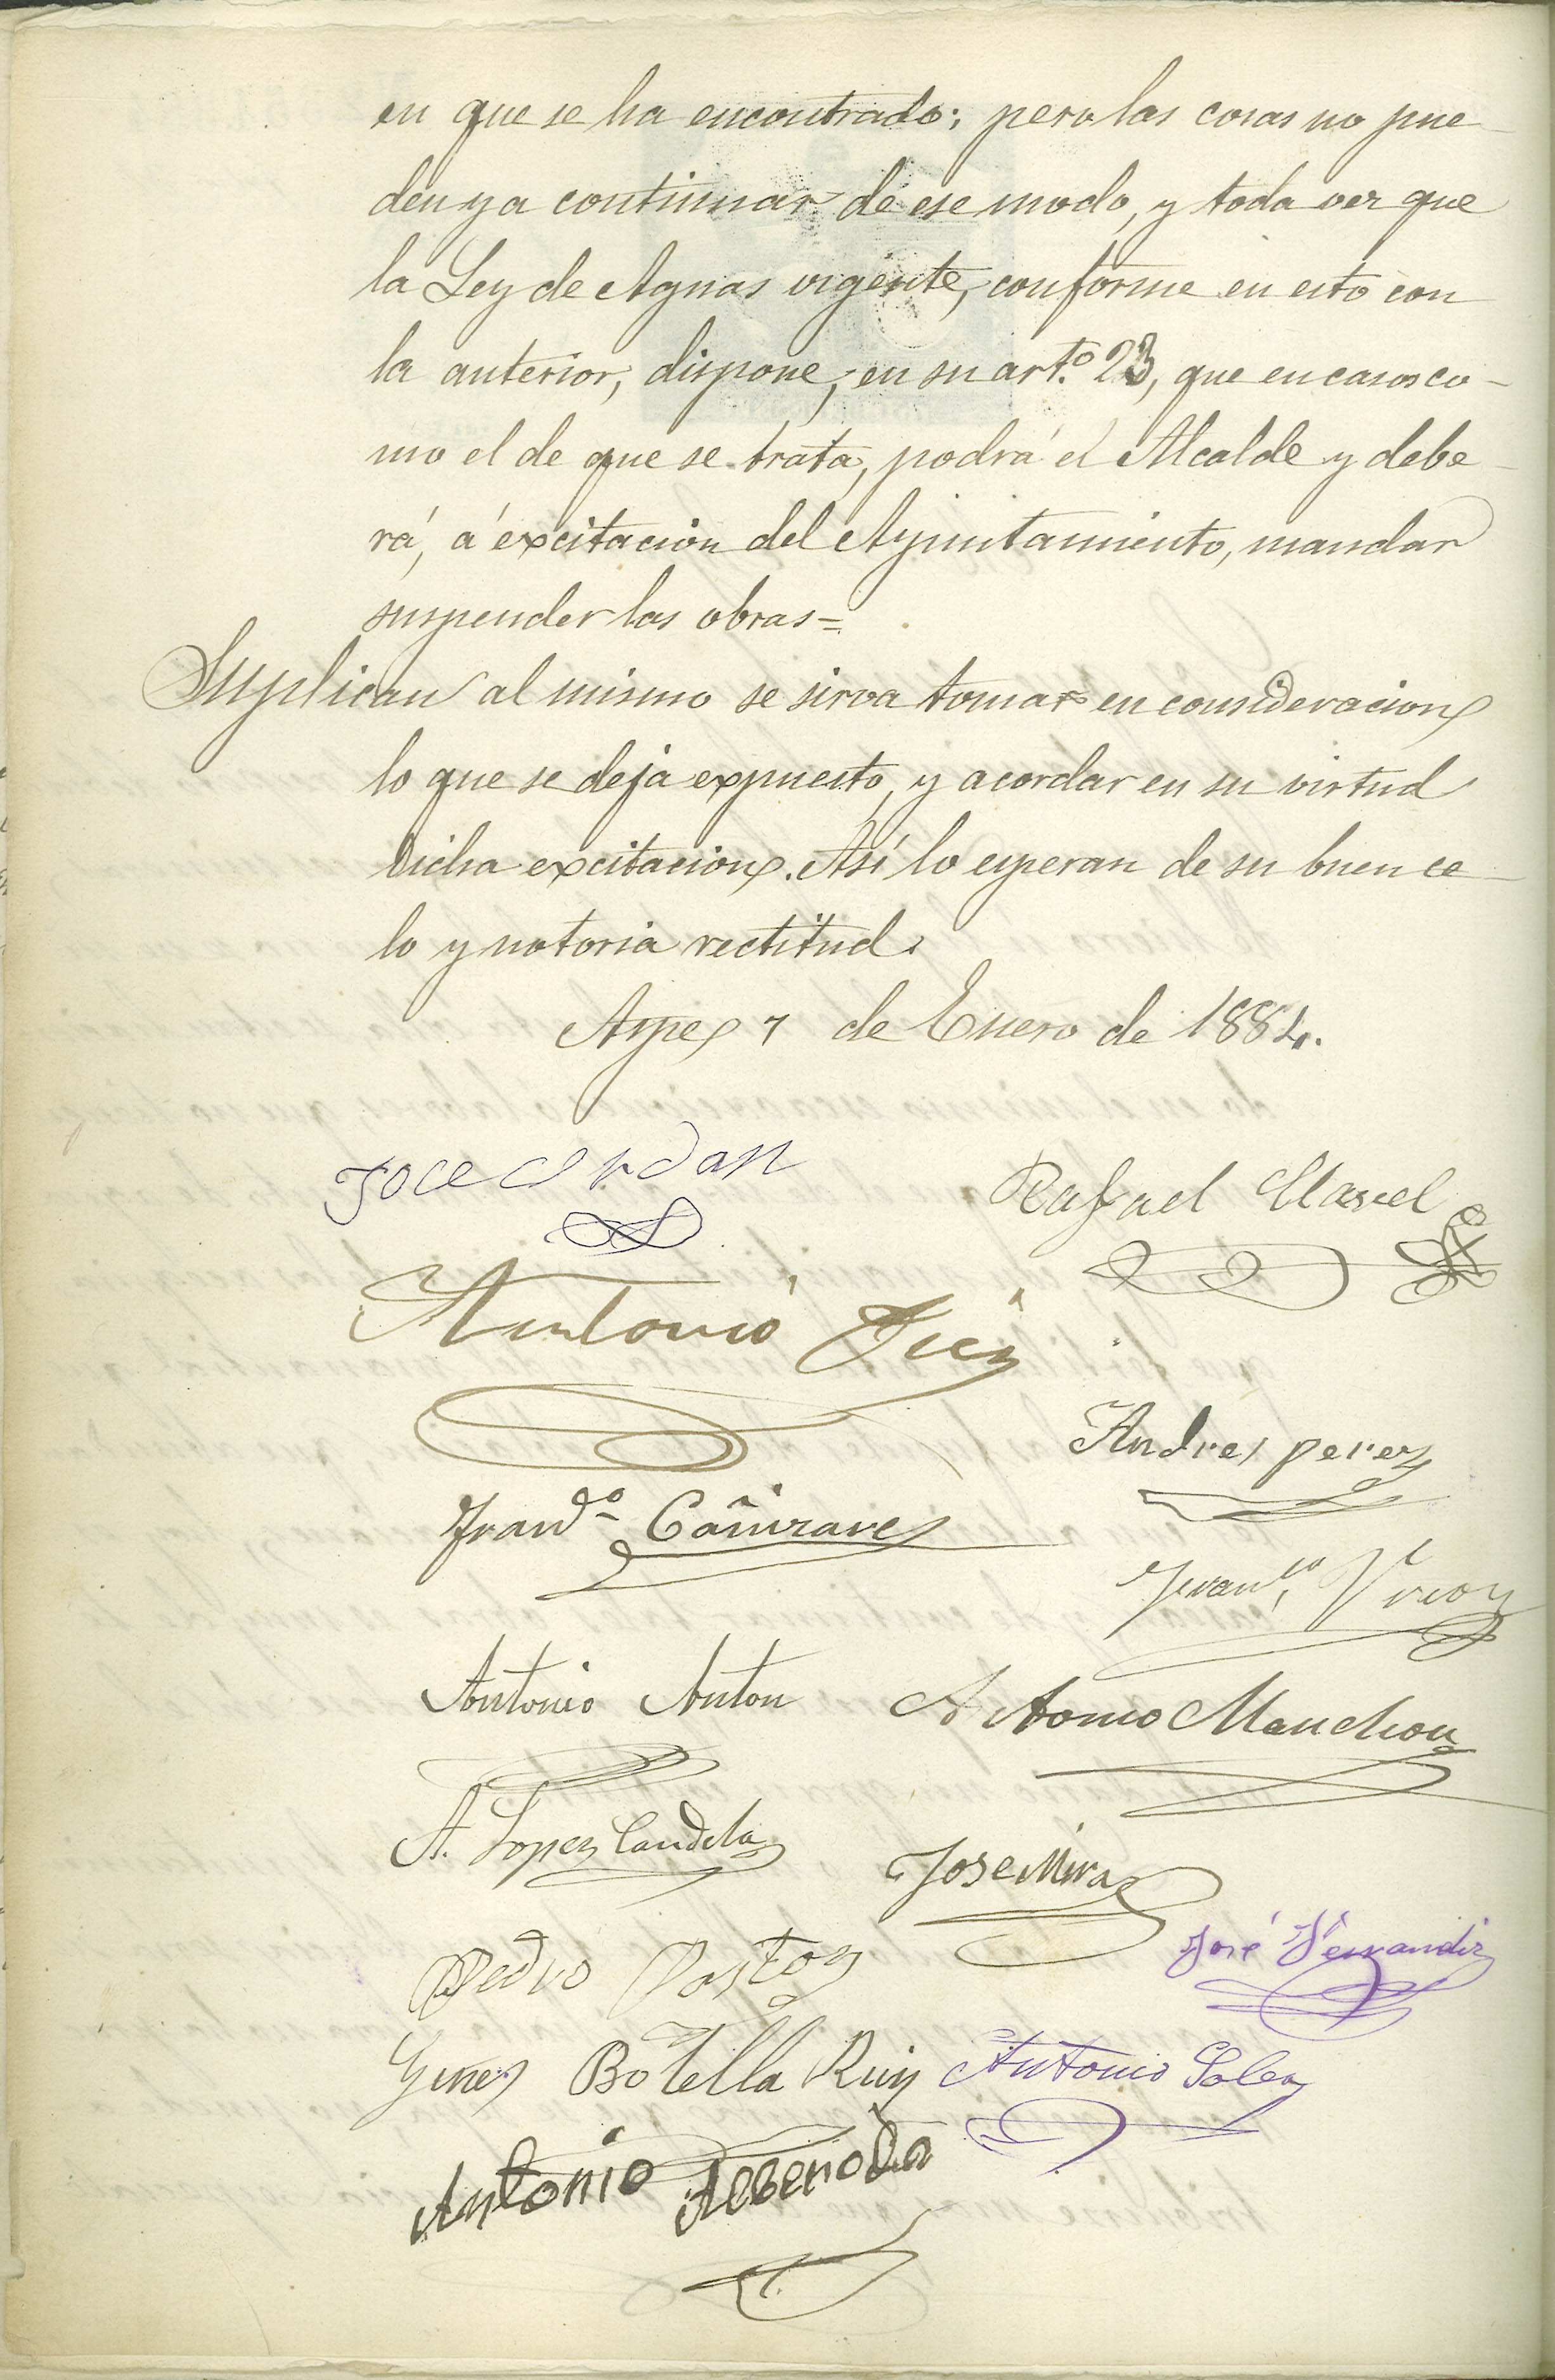 en que se ha encontrado; pero las cosas no pue
den ya continuar de ese modo, y toda vez que
la Ley de Aguas vigente, conforme en esto con
la anterior, dispone, en su art.º 23, que en casos co-
mo el de que se trata, podrá el Alcalde y debe
rá, á excitacion del Ayuntamiento, mandar
suspender las obras=
Suplican al mismo se sirva tomar en consideracion
lo que se deja expuesto, y acordar en su virtud
dicha excitacion. Así lo esperan de su buen ce
lo y notoria rectitud.
Aspe 7 de Enero de 1884.
Joce cerdan
Rafael Clavel
Antonio
Andres perez
Cañizares
Antonio Anton
Antonio Manchon
A. Lopez Candela
Jose Mira
Pedro Pastor
José Fernandiz
Gines Botella Ruiz
Antonio Soler
Antonio Alberola